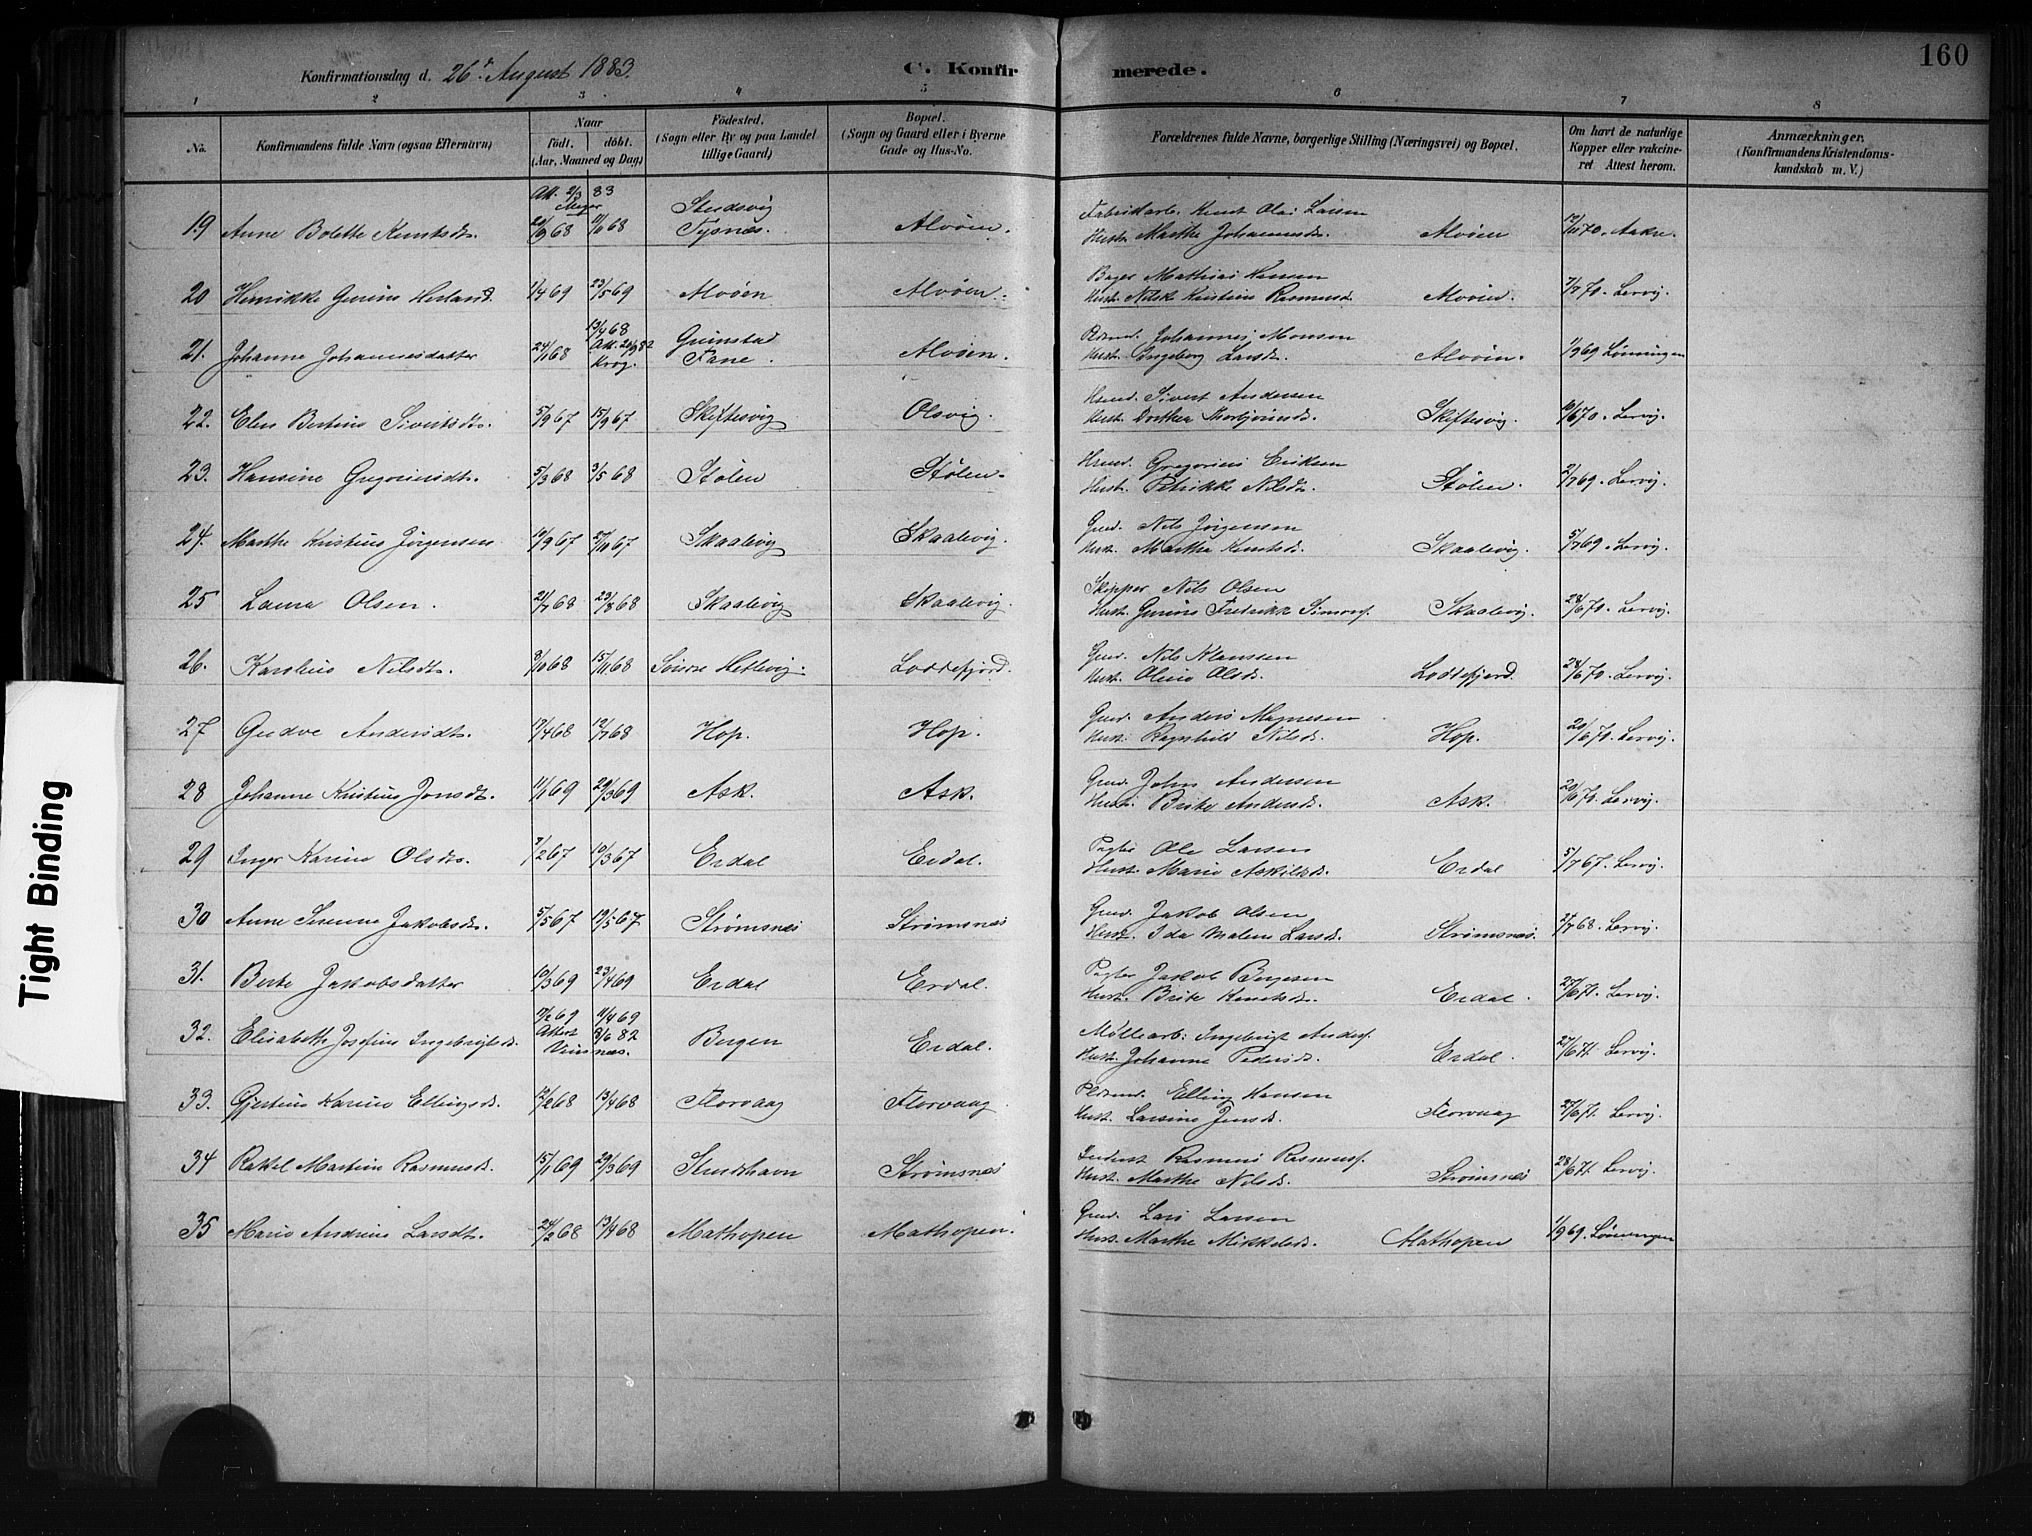 160
Konfirmationsdag d. 26de August 1883.
C. Konfirmerede.
1 2 3 4 5 6 7 8
No. Konfirmandens fulde Navn (ogsaa Efternavn) Naar født. døbt. (Aar, Maaned og Dag) Fødested. (Sogn eller By og paa Landet tillige Gaard) Bopæl. (Sogn og Gaard eller i Byerne Gade og Hus-No. Forældrenes fulde Navne, borgerlige Stilling (Næringsvei) og Bopæl. Om havt de naturlige Kopper eller vakcineret Attest herom. Anmærkninger. (Konfirmandens Kristendomskundskab m. V.)
Att. 2/3 83
19 Anne Bolette Knutsdr. 20/9 68 11/10 68 Tysnæs. Alvøen. Fabrikarb. Knut Olai Larsen
Hustr. Marthe Johannesdr. Alvøen 12/11 70. Aakre.
20 Henrikke Gurine Herland 1/4 69 23/5 69 Alvøen Alvøen. Bager Mathias Hansen
Hust. Nilske Kristine Rasmusd. Alvøen. 7/7 70. Lervig.
21. Johanne Johannesdatter 24/1 68 13/4 68 Att. 20/9 82 Krog. Grimstad Fane. Alvøen. Johannes Monsen
Hust. Ingeborg Larsdr. Alvøen. 1/9 69 Lønningen
22. Elen Bertine Sivertsdr. 5/9 67 15/9 67 Skiftesvig Olsvig. Hmd. Sivert Andersen
Hust. Dorthea Skiftesvig. 10/6 70. Lervig.
23. Hansine Gregoriusdt. 5/3 68 3/5 68 Stølen Stølen. Hmd. Gregorius Eriksen
Hust. Petrikke Nilsdr. Stølen. 2/7 69. Lervig.
24. Marthe Kristine Jørgensen 10/9 67 27/10 67 Skaalevig Skaalevig. Grd. Nils Jørgensen
Hust. Martha Knutsdr. Skaalevig. 5/7 69. Lervig.
25 Laura Olsen. 21/7 68 23/8 68 Skaalevig Skaalevig. Skipper Nils Olsen
Hust. Gurine Fredrikke Simonsd. Skaalevig. 28/6 70. Lervig.
26. Karoline Nilsdt. 3/10 68 15/11 68 Hetlevig. Loddefjord. Grd. Nils Klaussen
Hust. Oline Olsdr. Loddefjord. 28/6 70. Lervig.
27 Gudve Andersdt. 17/4 68 12/7 68 Hop. Hop. Grd. Anders Magnesen
Hust. Ragnhild Nilsdr. Hop. 20/6 70. Lervig.
28 Johanne Kristine Jonsdt. 11/1 69 29/3 69 Ask. Ask. Grd. John Andersen
Hust. Brite Andersdr. Ask. 20/6 70. Lervig.
29 Inger Karine Olsdr. 3/2 67 10/3 67 Erdal Erdal. Pagter Ole Larsen
Hust. Marie Askildsdr. Erdal 5/7 67. Lervig.
30 Anne Serine Jakobsdr. 5/5 67 19/5 67 Strømsnæs Strømsnæs Grd. Jakob Olsen
Hust. Ida Malene Larsdr. Strømsnæs. 2/7 68. Lervig.
31. Berte Jakobsdatter 10/3 69 23/4 69 Erdal Erdal. Pagter Jakob Børgesen
Hust. Brite Knutsdr. Erdal. 27/6 71. Lervig.
32. Elisabeth Josefine Ingebrigtsdr. 7/2 69 11/4 69 Attest 3/6 82 Bergen Erdal. Møllearb. Ingebrigt Andersf.
Hust. Johanne Pedersdr. Erdal. 27/6 71. Lervig.
33. Gjertine Karine Ellingsdr. 12/2 68 13/4 68 Florvaag Florvaag. Elling Hansen
Hust. Larsine Jensdr. Florvaag 27/6 71. Lervig.
34 Rakel Martine Rasmusdr. 15/1 69 29/3 69 Strømsnæs Inderst Rasmus Rasmusf.
Hust. Marthe Nilsdr. Strømsnæs 28/6 71. Lervig.
35 Marie Andrine Larsdt. 24/2 68 13/4 68 Mathopen Mathopen. Grd. Lars Larsen
Hust. Marthe Mikkelsdr. Mathopen 1/9 69. Lønningen
Tight Binding